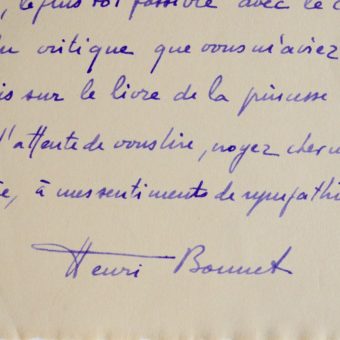 , le plus tôt possible avec le c
du critique que vous m'aviez
is sur le livre de la princesse
l'attente de vous lire, croyez cher
, à mes sentiments de sympathi
Henri Bonnet